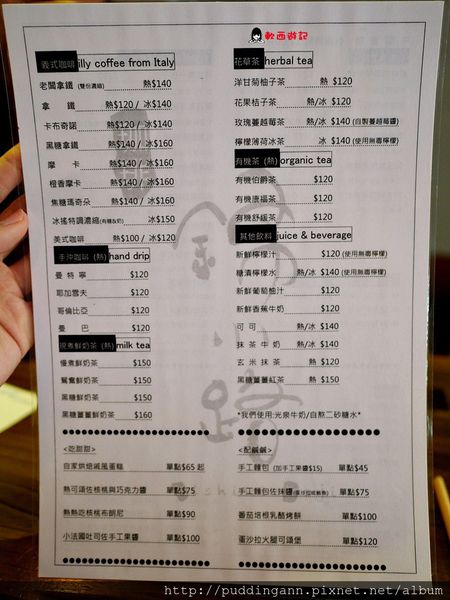 軟西遊記
義式咖啡 illy coffee from Italy
老闆拿鐵 (雙份濃縮) 熱$140
拿 鐵 熱$120 / 冰$140
卡布奇諾 熱$120 / 冰$140
黑糖拿鐵 熱$140 / 冰$160
摩 卡 熱$140 / 冰$160
橙香摩卡 熱$140 / 冰$160
焦糖瑪奇朵 熱$140 / 冰$160
冰搖特調濃縮(有糖&奶) 冰$150
美式咖啡 熱$100 / 冰$120
手沖咖啡 (熱) hand drip
曼 特 寧 $120
耶加雪夫 $120
哥倫比亞 $120
曼 巴 $120
現煮鮮奶茶 (熱) milk tea
優煮鮮奶茶 $150
鴛鴦鮮奶茶 $150
黑糖鮮奶茶 $150
黑糖薑薑鮮奶茶 $160
花草茶 herbal tea
洋甘菊柚子茶 熱 $120
花果桔子茶 熱/冰 $120
玫瑰蔓越莓茶 熱/冰 $140 (自製蔓越莓醬)
檸檬薄荷冰茶 冰 $140 (使用無毒檸檬)
有機茶 (熱) organic tea
有機伯爵茶 $120
有機康福茶 $120
有機舒緩茶 $120
其他飲料 juice & beverage
新鮮檸檬汁 $120 (使用無毒檸檬)
糖漬檸檬水 熱/冰 $140 (使用無毒檸檬)
新鮮葡萄柚汁 $120
新鮮香蕉牛奶 $120
可 可 熱/冰 $140
抹 茶 牛 奶 熱/冰 $140
玄 米 抹 茶 熱 $120
黑糖薑薑紅茶 熱 $150
*我們使用:光泉牛奶/自熬二砂糖水*
<吃甜甜>
自家烘焙戚風蛋糕 單點$65 起
熱可頌佐核桃與巧克力醬 單點$75
熱熱吃核桃布朗尼 單點$90
小法國吐司佐手工果醬 單點$100
<配鹹鹹>
手工麵包 (加手工果醬$15) 單點$45
手工麵包佐抹醬 單點$75
蕃茄培根乳酪烤餅 單點$100
蛋沙拉火腿可頌堡 單點$120
http://puddingann.pixnet.net/album